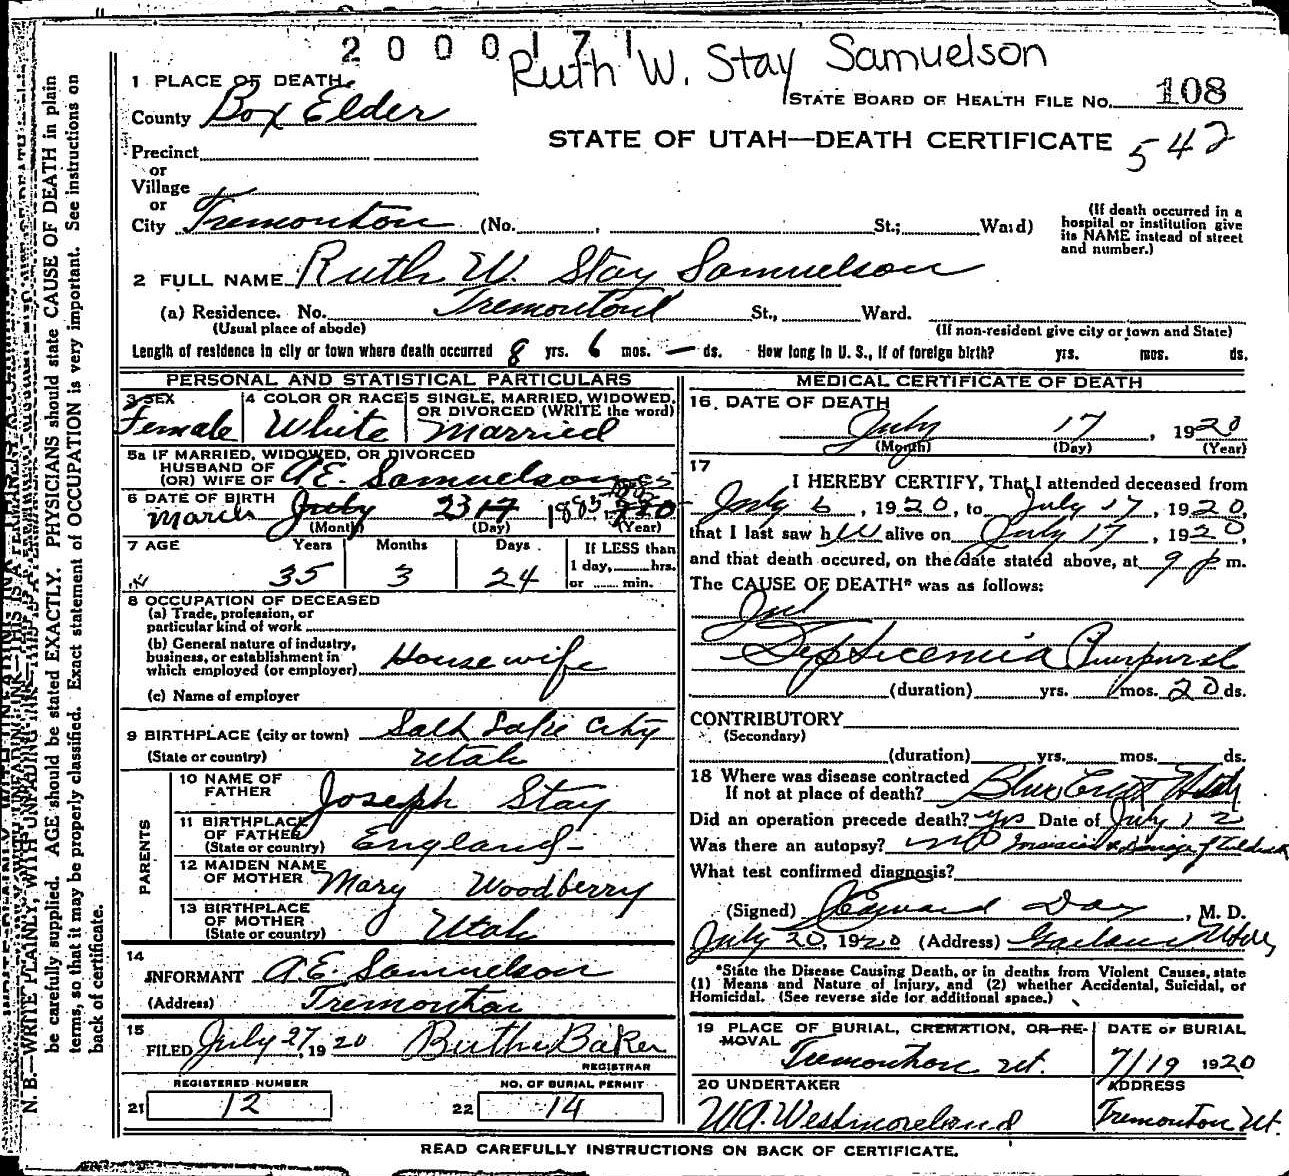 2000171
Ruth W. Stay Samuelson
1 PLACE OF DEATH
STATE BOARD OF HEALTH FILE NO. 108
County Box Elder
STATE OF UTAH—DEATH CERTIFICATE 542
Precinct
or
Village
or
City Tremonton (No. , St.; Ward)
(If death occurred in a
hospital or institution give
its NAME instead of street
and number.)
2 FULL NAME Ruth W. Stay Samuelson
(a) Residence. No. Tremonton St., Ward.
(Usual place of abode) (If non-resident give city or town and State)
Length of residence in city or town where death occurred 8 yrs. 6 mos. — ds. How long in U. S., if of foreign birth? yrs. mos. ds.
PERSONAL AND STATISTICAL PARTICULARS
3 SEX 4 COLOR OR RACE 5 SINGLE, MARRIED, WIDOWED,
OR DIVORCED (WRITE the word)
Female White Married
5a IF MARRIED, WIDOWED, OR DIVORCED
HUSBAND OF
(OR) WIFE OF A.E. Samuelson
6 DATE OF BIRTH
March July 23 17 1885
(Month) (Day) (Year)
7 AGE Years Months Days If LESS than
1 day, hrs.
35 3 24 or min.
8 OCCUPATION OF DECEASED
(a) Trade, profession, or
particular kind of work
(b) General nature of industry,
business, or establishment in
which employed (or employer) Housewife
(c) Name of employer
9 BIRTHPLACE (city or town) Salt Lake City
(State or country) Utah
PARENTS
10 NAME OF
FATHER Joseph Stay
11 BIRTHPLACE
OF FATHER
(State or country) England
12 MAIDEN NAME
OF MOTHER Mary Woodberry
13 BIRTHPLACE
OF MOTHER
(State or country) Utah
14
INFORMANT A.E. Samuelson
(Address) Tremonton
15
FILED July 27, 1920 Baker
REGISTRAR
REGISTERED NUMBER NO. OF BURIAL PERMIT
21 12 22 14
MEDICAL CERTIFICATE OF DEATH
16. DATE OF DEATH
July 17, 1920
(Month) (Day) (Year)
17
I HEREBY CERTIFY, That I attended deceased from
July 6, 1920, to July 17, 1920,
that I last saw her alive on July 17, 1920,
and that death occured, on the date stated above, at 9 p m.
The CAUSE OF DEATH* was as follows:
Septicemia
(duration) yrs. mos. 20 ds.
CONTRIBUTORY
(Secondary)
(duration) yrs. mos. ds.
18 Where was disease contracted
If not at place of death? Blue Creek Utah
Did an operation precede death? yes Date of July 12
Was there an autopsy? no
What test confirmed diagnosis?
(Signed) Day, M. D.
July 20, 1920 (Address) Garland Utah
*State the Disease Causing Death, or in deaths from Violent Causes, state
(1) Means and Nature of Injury, and (2) whether Accidental, Suicidal, or
Homicidal. (See reverse side for additional space.)
19 PLACE OF BURIAL, CREMATION, OR RE-
MOVAL
Tremonton Ut.
DATE OF BURIAL
7/19 1920
20 UNDERTAKER
W.A. Westmoreland
ADDRESS
Tremonton Ut.
READ CAREFULLY INSTRUCTIONS ON BACK OF CERTIFICATE.
N. B.—WRITE PLAINLY, WITH UNFADING INK—THIS IS A PERMANENT RECORD.
be carefully supplied. AGE should be stated EXACTLY. PHYSICIANS should state CAUSE OF DEATH in plain
terms, so that it may be properly classified. Exact statement of OCCUPATION is very important. See instructions on
back of certificate.